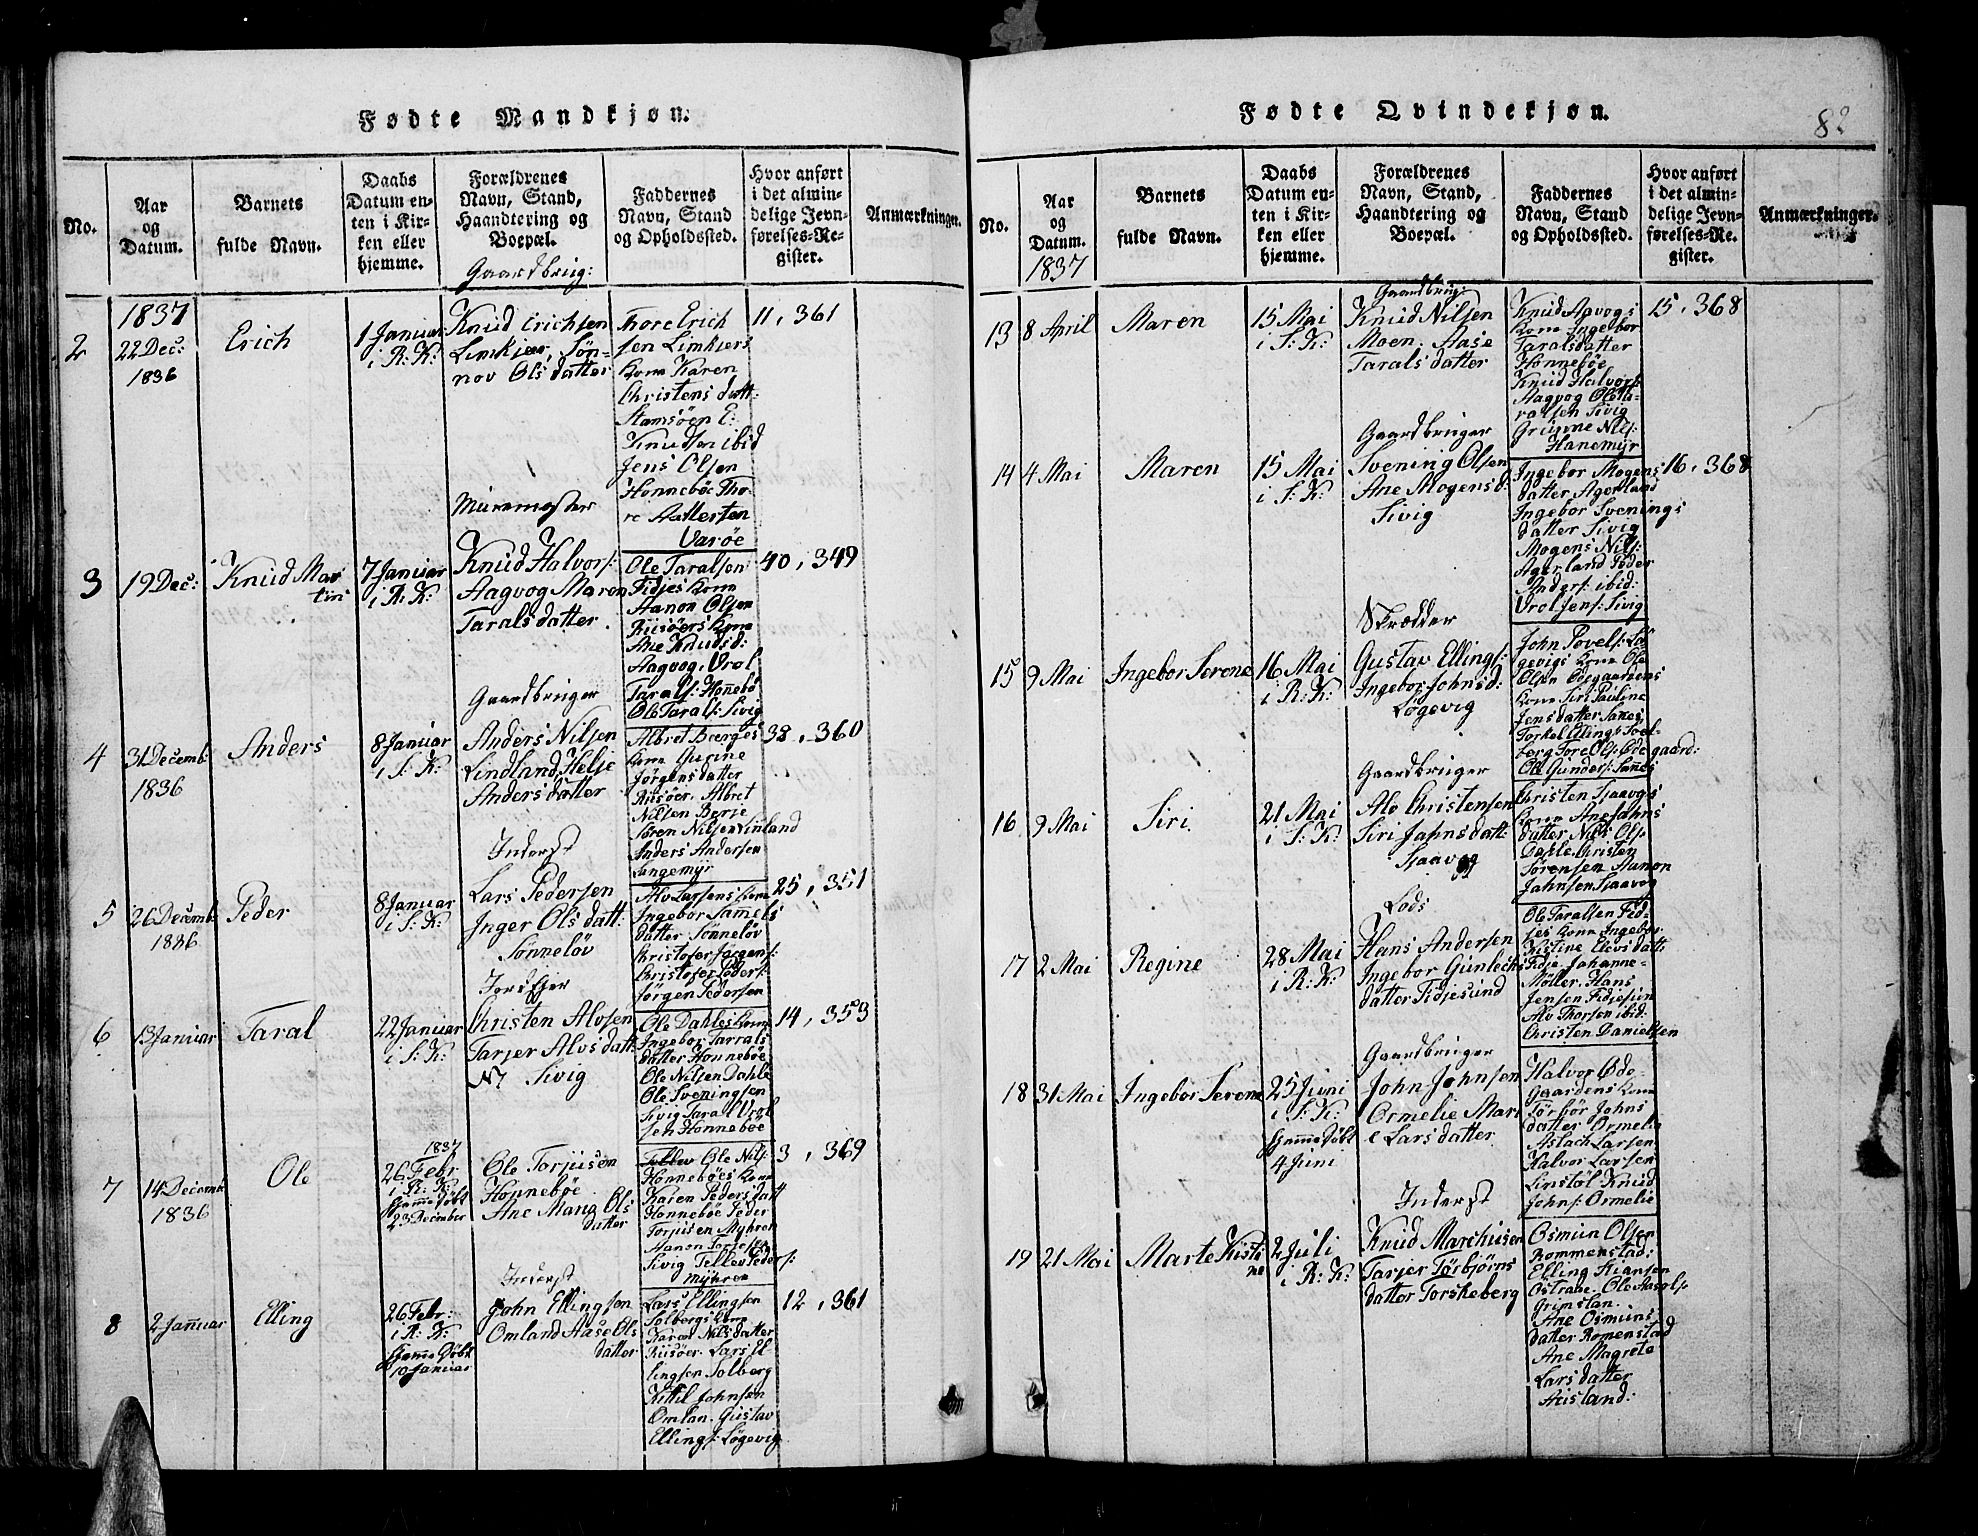 Fødte Mandkjøn.
No.
Aar
og
Datum.
Barnets
fulde Navn.
Daabs
Datum en-
ten i Kir-
ken eller
hjemme.
Forældrenes
Navn, Stand,
Haandtering og
Boepæl.
Faddernes
Navn, Stand
og Opholdssted.
Hvor anført
i det almin-
delige Jevn-
førelses-Re-
gister.
Anmærkninger.
2
1837
22 Dec:
1836
Erich
1 Januar
i R: K:
Gaardbrug:
Knud Erichsen
Limkjær, Søn-
nov Olsdatter
Thore Erich
sen Limkjers
Kone Karen
Christens datt:
Stamsøen E:
Knudsen ibid
Jens Olsen
Honnebøe Tho-
re Aattesten
Varøe
11, 361
3
19 Dec:
Knud Mar
tin
7 Januar
i R: K:
Muurmester
Knud Halvors:
Aagvog Maren
Taralsdatter.
Ole Taralsen
Fidjes Kone
Aanon Olsen
Riisøers Kone
Ane Knudsd:
Aagvog, Vrol
Tarals: Honnebø
Ole Tarals: Sivig
40, 349
4
31 Decemb:
1836
Anders
8 Januar
i S: K:
Gaardbruger
Anders Nilsen
Lindland, Helje
Andersdatter
Albret Brerges
Kone Gurine
Jørgensdatter
Riisøer, Albret
Nilsen Berje
Søren Nilsen Linland
Anders Andersen
Langemyr
38, 360
5
26 Decemb:
1836
Peder
8 Januar
i S: K:
Inderst
Lars Pedersen
Inger Olsdatt:
Sønneløv
Alv Larsens Kone
Ingebor Samels
datter Sønneløv
Christofer Jørgens:
Christofer Peders:
Jørgen Pedersen
25, 351
6
13 Januar
Taral
22 Januar
i S: K:
Jordejer
Christen Alvsen
Tarjer Alvsdatt:
Sivig
Ole Dahles Kone
Ingebor Tarrals
datter Honnebøe
Ole Nilsen Dahle
Ole Sveningsen
Sivig Taral Vrol
sen Honnebøe
14, 353
7
14 Decemb:
1836
Ole
1837
26 Febr
i R: K:
Hjemme Døbt
23 December
Ole Torjusen
Honnebøe
Ane Mang Ols
datter
Tellev Ole Nils:
Honnebøes Kone
Karen Pedersdatt
Honnebøe Peder
Torjusen Myhren
Aanon Torjes
Sivig Tellev Peders:
Myhren
3, 369
8
2 Januar
Elling
26 Febr:
i R: K:
Hjemme Døbt
10 Januar
Inderst
John Ellingsen
Omland Aase Ols
datter
Lars Ellingsen
Solbergs Kone
Karen Nilsdatter
Riisøer. Lars El
lingsen Solberg
Kittil Johnsen
Omlan. Gustav
Ellings: Løgevig
12, 361
Fødte Qvindekjøn.
82
No.
Aar
og
Datum.
1837
Barnets
fulde Navn.
Daabs
Datum en-
ten i Kir-
ken eller
hjemme.
Forældrenes
Navn, Stand,
Haandtering og
Boepæl.
Faddernes
Navn, Stand
og Opholdssted.
Hvor anført
i det almin-
delige Jevn-
førelses-Re-
gister.
Anmærkninger.
13
8 April
Maren
15 Mai
i S: K:
Gaardbrug:
Knud Nilsen
Moen. Aase
Taralsdatter
Knud Agvogs
Kone Ingebor
Taralsdatter
Honnebøe
Knud Halvors:
Aagvog Ole Ta-
ralsen Sivig
Grunne Nils:
Hanemyr
15, 368
14
4 Mai
Maren
15 Mai
i S: K:
Gaardbruger
Svening Olsen
Ane Mogensd:
Sivig
Ingebor Mogens
datter Agerland
Ingebor Svenings
datter Sivig
Mogens Nils:
Agerland Peder
Anders: ibid:
Vrolsens: Sivig
16, 368
15
9 Mai
Ingebor Serene
16 Mai
i R: K:
Skrædder
Gustav Ellings:
Ingebor Johnsd:
Løgevig
John Povels: Lø
gevigs Kone Ole
Olsen Odegaardens
Kone Siri Pauline
Jensdatter Sanes
Torkel Ellings: Soel-
berg Tore Ols: Ødegaard:
Ole Gunders: Sanes
16
9 Mai
Siri
21 Mai
i S: K:
Gaardbruger
Alv Christensen
Siri Jahnsdatt:
Sjaavog
Christen Sjaavogs
Kone Ane Jahns
datter Nils Ols:
Dahle. Christen
Sørensen Aanon
Jahnsen Sjaavog
17
2 Mai
Regine
28 Mai
i R: K:
Lods
Hans Andersen
Ingebor Gunlechs
datter Fidjesund
Ole Taralsen Fid-
jes Kone Ingebor
Kistine Elevsdatt:
Fidje Johanne-
Møller. Hans
Jensen Fidjesun
Alv Thorsen ibid:
Christen Danielsen
18
31 Mai
Ingebor Serene
25 Juni
i S: K:
Hjemme Døbt
4 Juni
Gaardbruger
John Johnsen
Ormelie Mari
e Larsdatter
Halvor Øde-
Gaardens Kone
Tørbør Johns
datter Ormelie
Aslach Larsen
Halvor Larsen
Linstøl Knud
Johns: Ormelie
19
21 Mai
Marte Kisti
ne
2 Juli
i R: K:
Inderst
Knud Marchusen
Tarjer Tørbjørns
datter Torskeberg
Osmun Olsen
Rommenstad:
Elling Kiansen
Østraae. Ole Aasols:
Grimslan.
Ane Osmuns
datter Romenstad
Ane Magrete
Larsdatter
Aaisland: